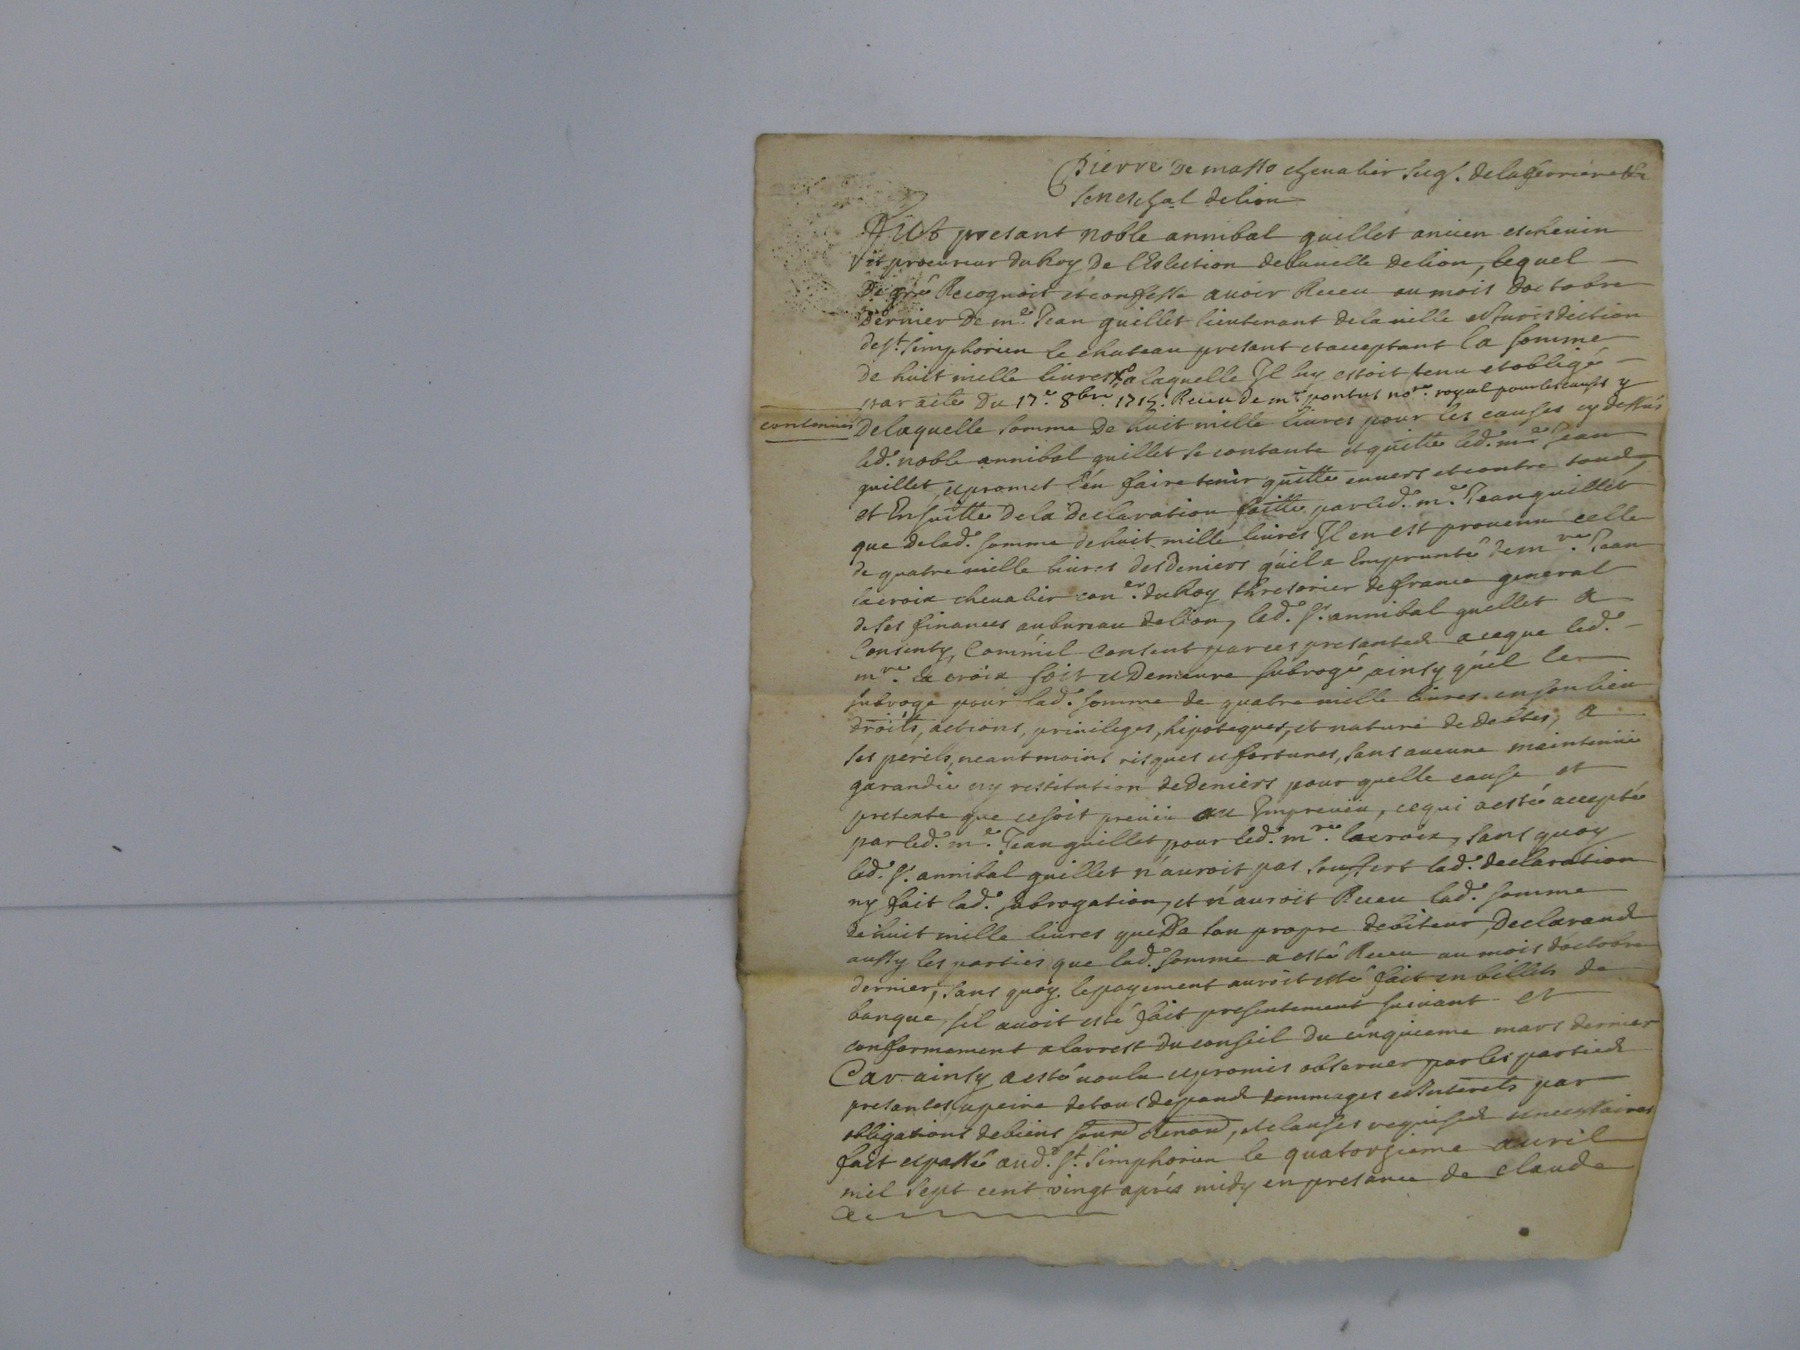 Pierre De masso chevalier seigr. de la ferriere &c
seneschal de lion
Fut presant noble annibal guillet ancien eschevin
et procureur du Roy de l'Eslection de la ville de lion, lequel
De gré Recognoit et confesse avoir Receu au mois d'octobre
Dernier De me. Jean guillet lieutenant de la ville et Jurisdiction
de st. Simphorien le chateau presant et acceptant la somme
de huit mille livres a laquelle Il luy estoit tenu et obligé
par acte Du 17e. 8bre. 1715. Receu de me. pontus nore. royal pour les causes y
contenues De laquelle somme De huit mille livres pour les causes cy dessus
led. noble annibal guillet se contante et quitte led. me. Jean
guillet, et promet l'en faire tenir quitte envers et contre tous,
et Ensuitte De la Declaration faitte par led. me. Jean guillet
que de lad. somme de huit mille livres Il en est provenu celle
de quatre mille livres des deniers qu'il a Emprunté de mre. Jean
lacroix chevalier coner. du Roy thresorier de france general
de ses finances au bureau de lion, led. sr. annibal guillet a
Consenty, Comme il Consent par ces presantes a ce que led.
mre. la croix soit et Demeure subrogé ainsy qu'il le
subroge pour lad. somme de quatre mille livres en son lieu
droits, actions, privileges, hipoteques, et nature de debtes, a
ses perils neantmoins risques et fortunes, sans aucune maintenüe
garandie ny restitution de Deniers pour quelle cause et
pretexte que ce soit preveu ou Impreveu, ce qui a esté accepté
par led. me. Jean guillet pour led. mre. lacroix, sans quoy
led. sr. annibal guillet n'auroit pas souffert lad. declaration
ny fait lad. subrogation, et n'auroit Receu lad. somme
de huit mille livres que De son propre debiteur, Declarand
aussy les parties que lad. somme a esté Receu au mois d'octobre
dernier, sans quoy le payement auroit esté fait en billets de
banque, s'il avoit esté fait presentement suivant et
conformement a l'arrest Du conseil Du cinquieme mars dernier
Car ainsy a esté voulu et promis observer par les parties
presantes a peine de tous despands dommages et Interets par
obligations de biens soumd. renond., et clauses requises et necessaires
fait et passé aud. st. Simphorien le quatorzieme avril
mil sept cent vingt aprés midy en presance de Claude